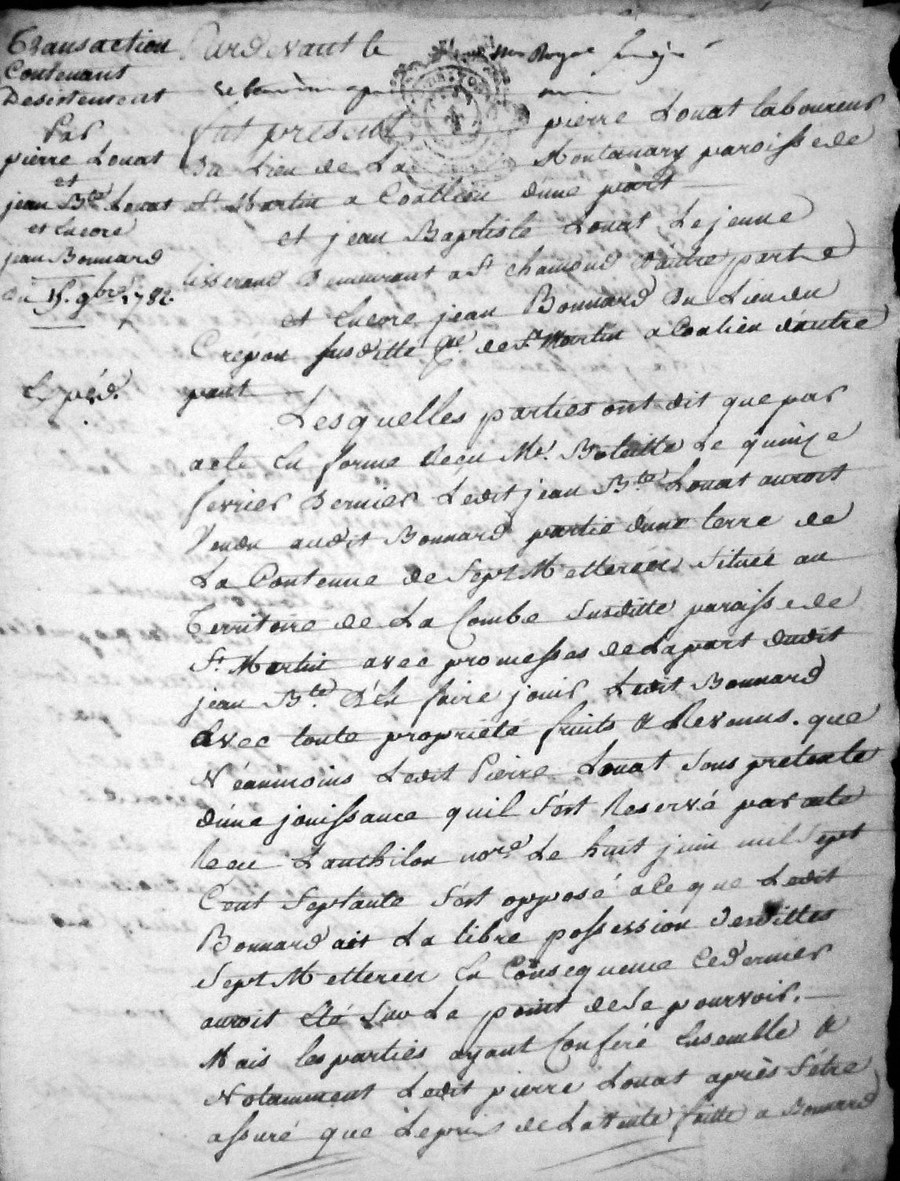 Transaction
Contenant
Desistement
Par
pierre Louat
et
jean Bte Louat
et Encore
jean Bonnard
Du 15. 9bre 1782.
Expéd.
Pardevant le Royal
fut present pierre Louat laboureur
du Lieu de La Montanary paroisse de
St. Martin a Coallieu d'une part
et jean Baptiste Louat Lejeune
tisserand Demeurant a St chamond D'autre part
et Encore jean Bonnard du Lieu du
Crepon susditte psse. de St Martin a Coalieu d'autre
part
Lesquelles parties ont dit que par
acte En forme Recu Me. Le quinze
fevrier Dernier Ledit jean Bte Louat auroit
Vendu audit Bonnard partie d'une terre de
La Contenue de Sept Metterées Située au
Territoire de La Combe Susditte paroisse de
St. Martin avec promesses de La part dudit
jean Bte. D'En faire jouir Ledit Bonnard
avec toute propriété fruits & Revenus. que
Néanmoins Ledit Pierre Louat Sous pretexte
d'une jouissance quil S'est Reservé par acte
Recu nore. Le huit juin mil Sept
Cent Septante S'est opposé a Ce que Ledit
Bonnard ait La libre possession Desdittes
Sept Metterées En Consequence Ce dernier
auroit Eté Sur Le point de Se pourvoir.
Mais les parties ayant Conferé Ensemble &
Notamment Ledit pierre Louat après S'être
assuré que Le prix de La Vente faitte a Bonnard